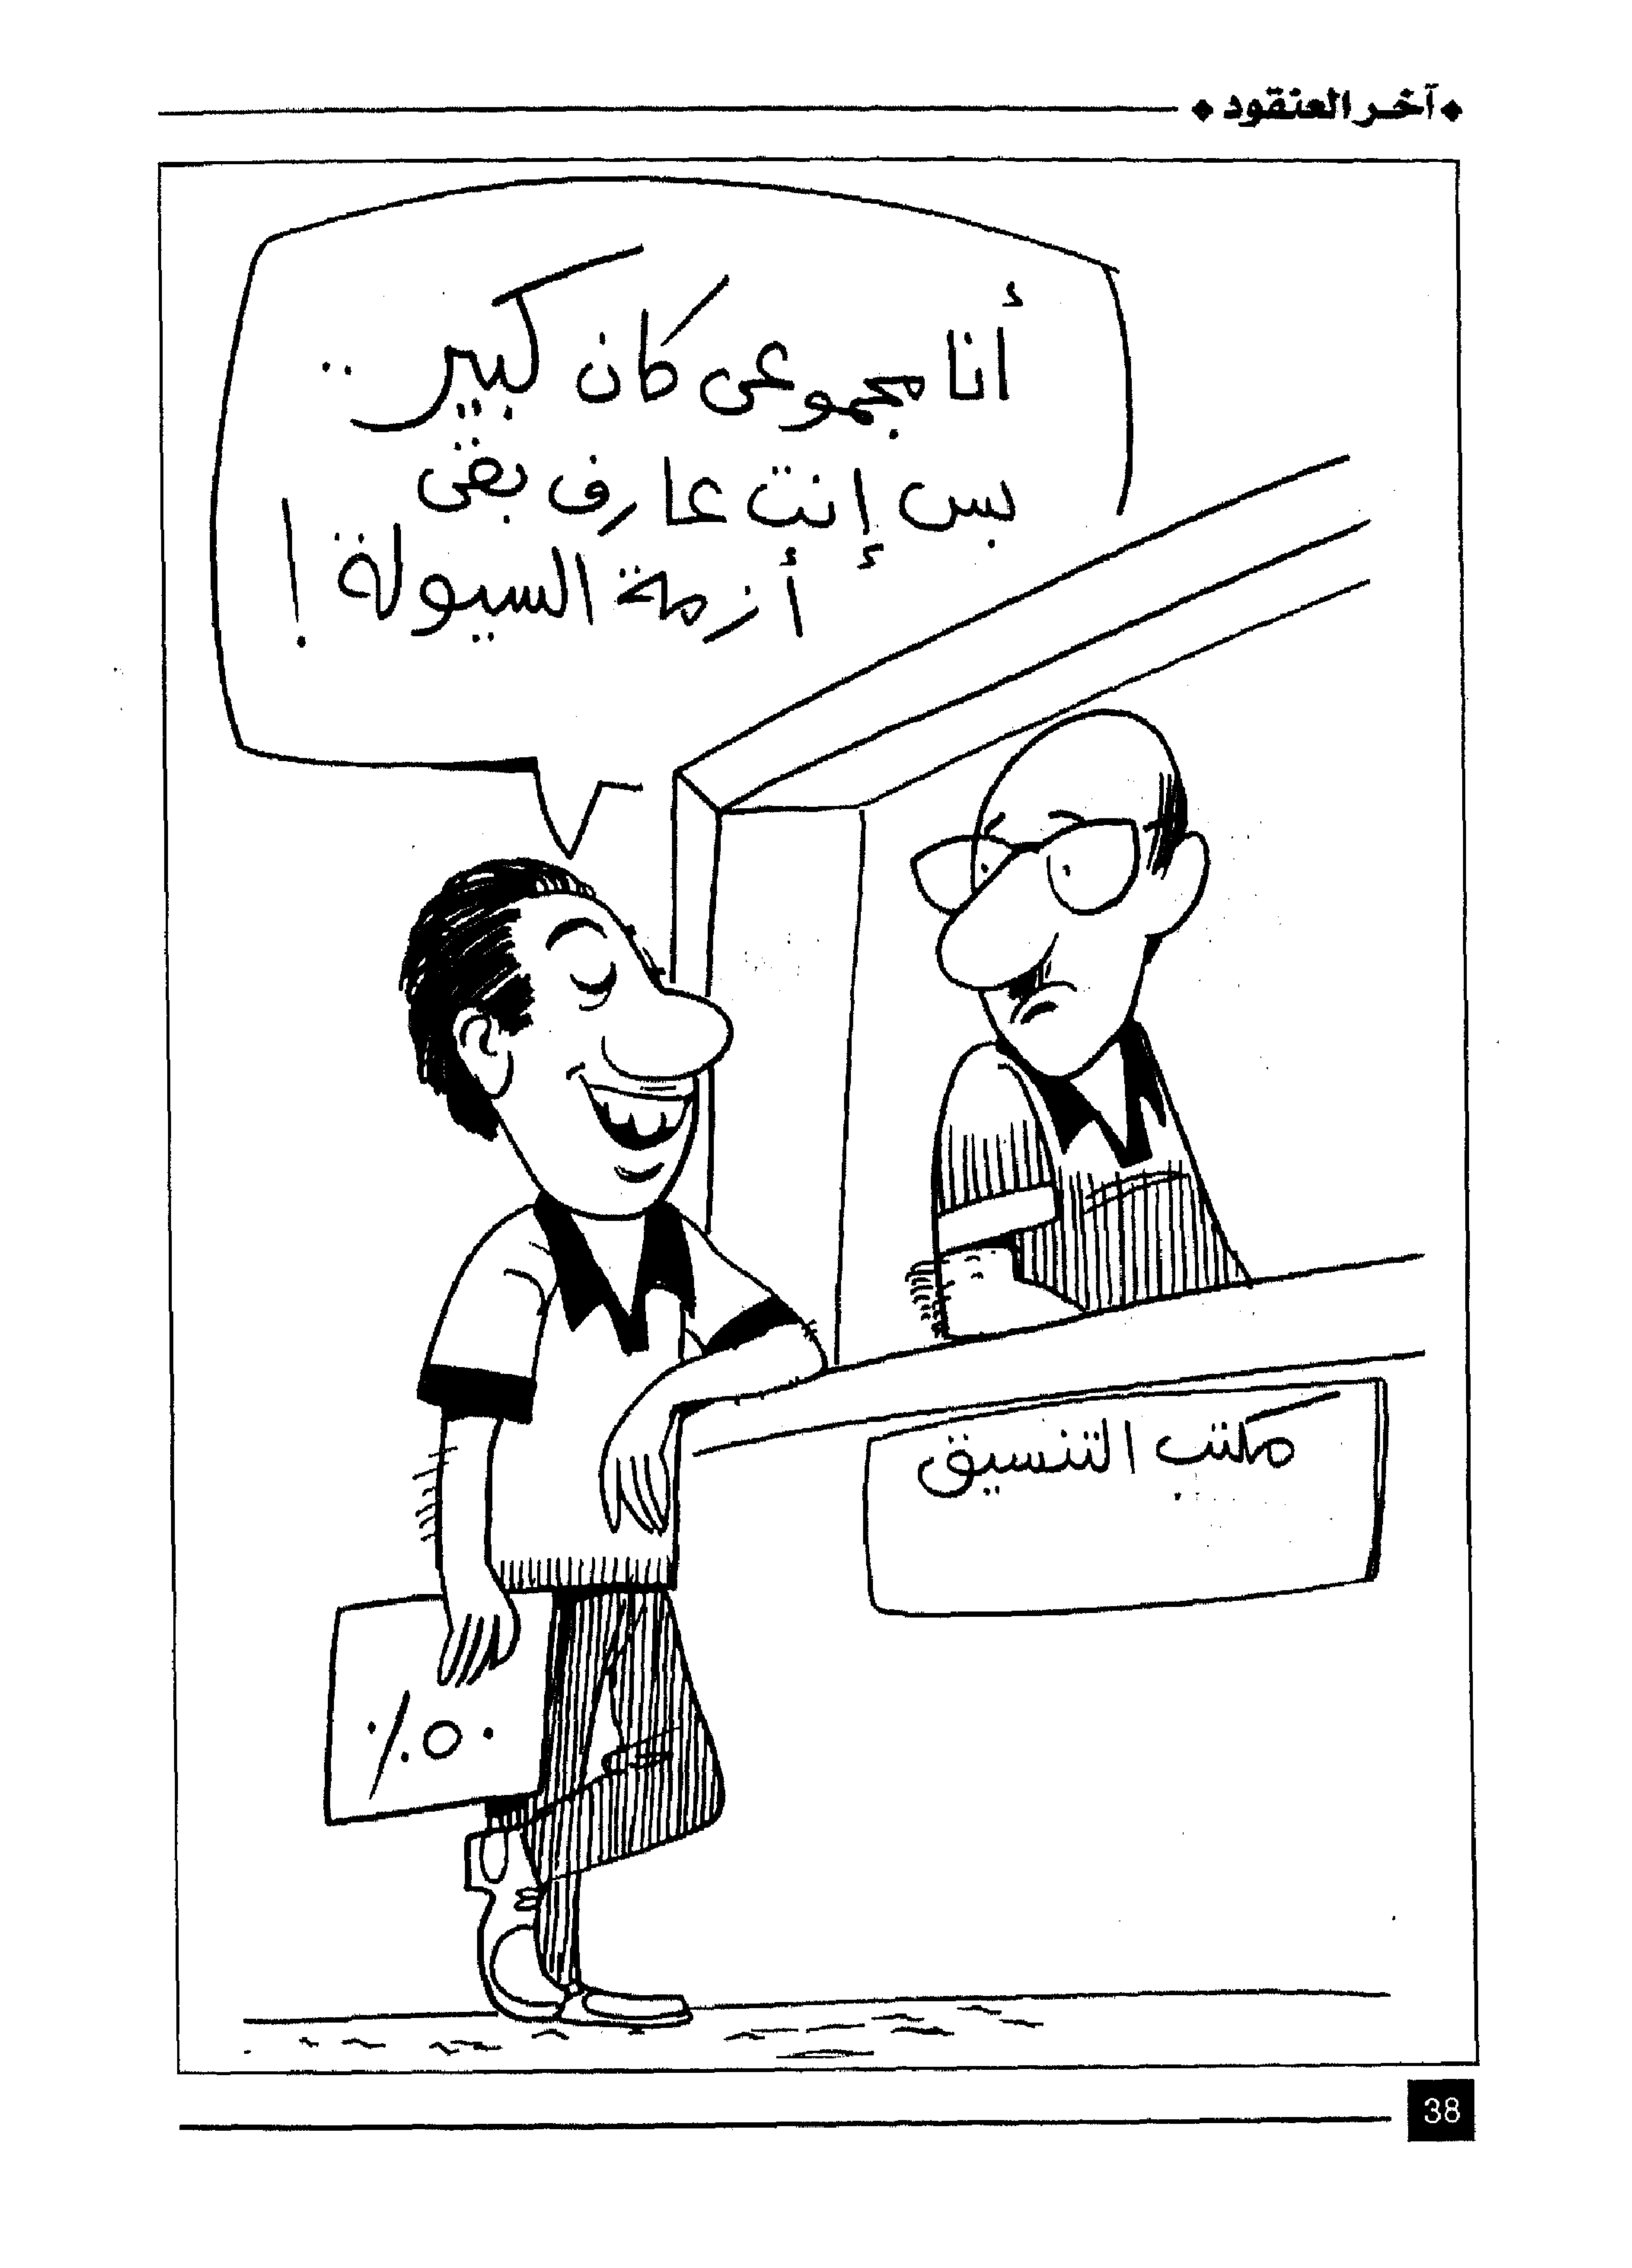 ◆ آخر العنقود ◆
أنا مجموعى كان كبير ..
بس إنت عارف بقى
أزمة السيولة !
مكتب التنسيق
٥٠٪
38